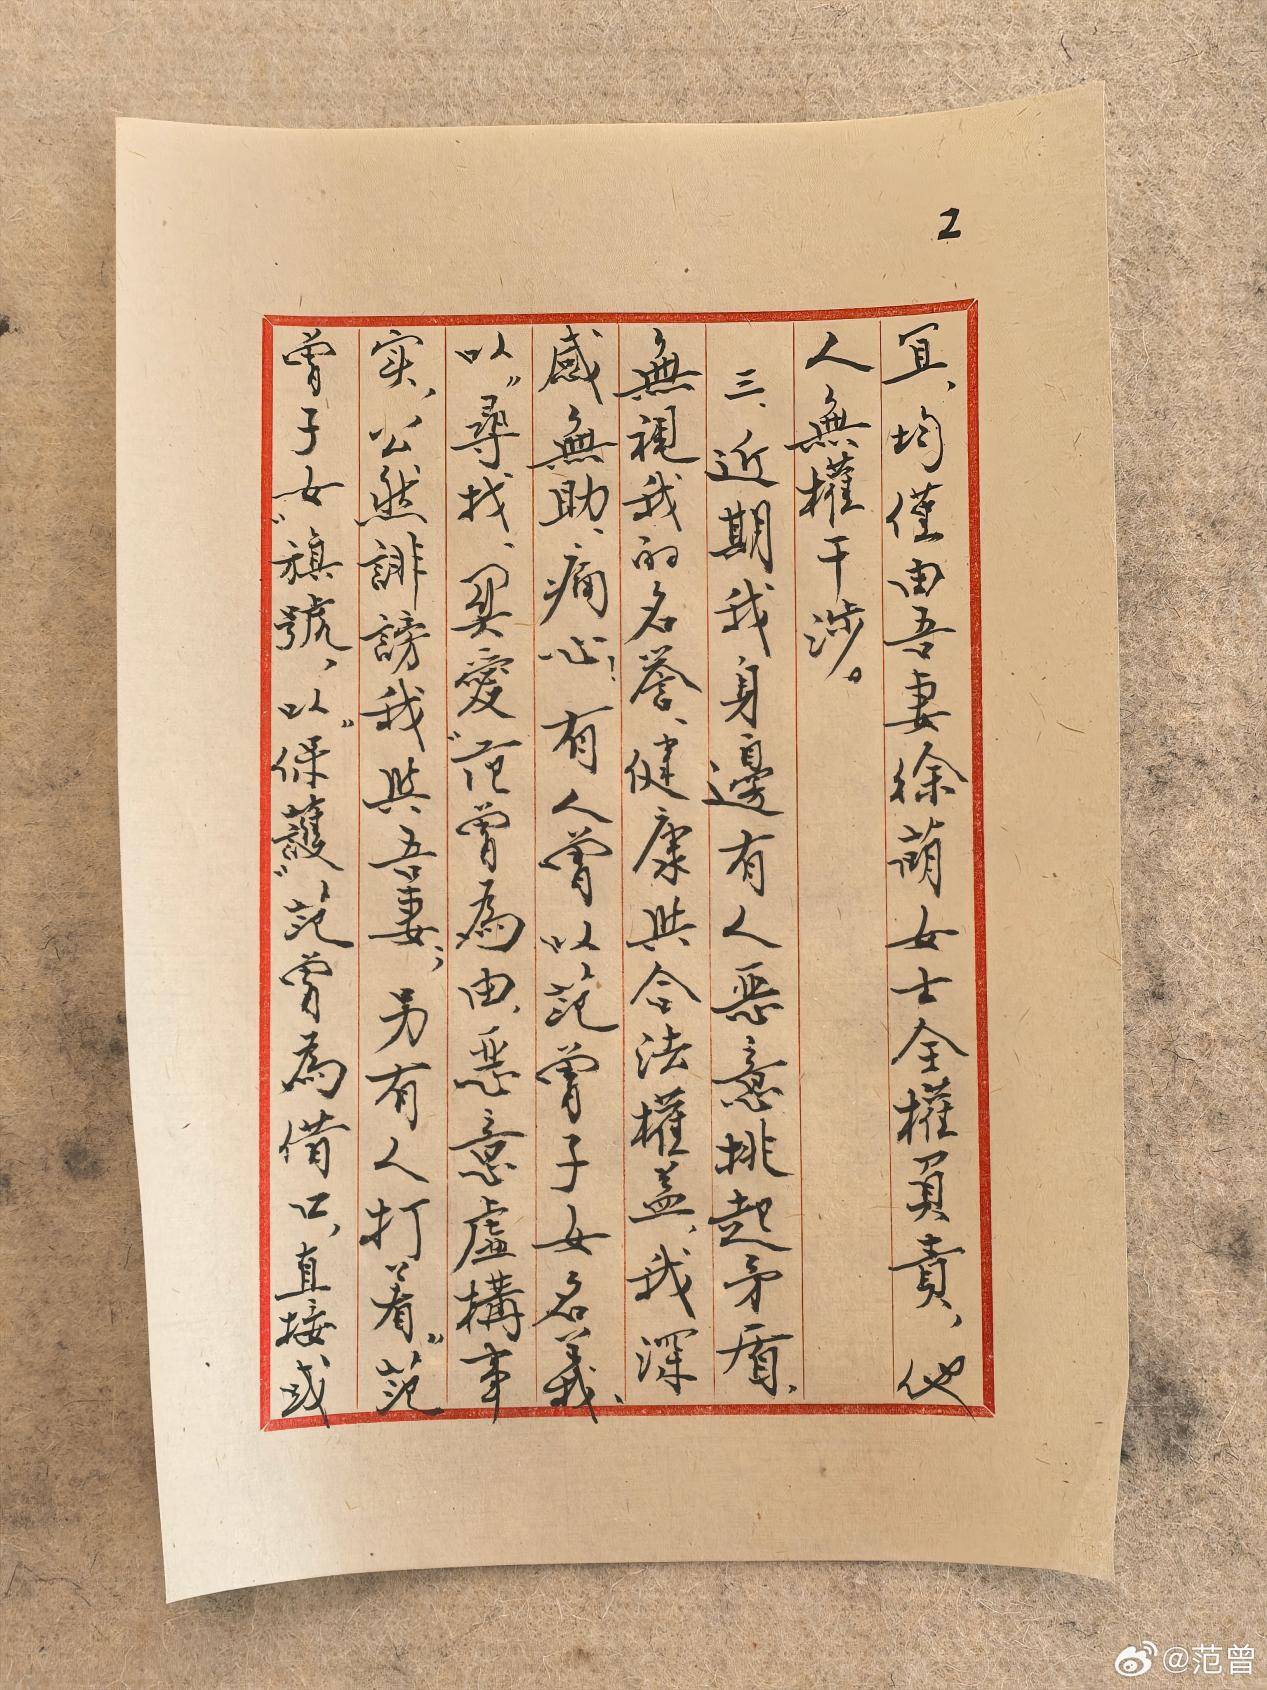 2
宜、均僅由吾妻徐萌女士全權負責，他
人無權干涉。
三、近期我身邊有人恶意挑起矛盾、
無視我的名譽、健康與合法權益，我深
感無助、痛心！有人曾以范曾子女名義、
以“尋找、關愛”范曾為由，恶意虛構事
实，公然誹謗我與吾妻；另有人打着“范
曾子女”旗號，以“保護”范曾為借口，直接或
@范曾